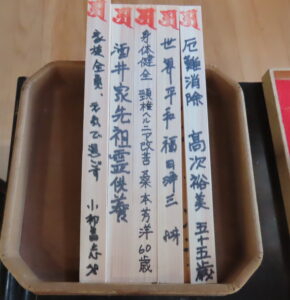 厄難消除 高次裕美 五十五歳
世界平和 福田浄三
身体健全 頸椎ヘルニア改善 桑本芳洋 60歳
酒井家先祖霊供養
家族全員、元気で過ごす 小柳